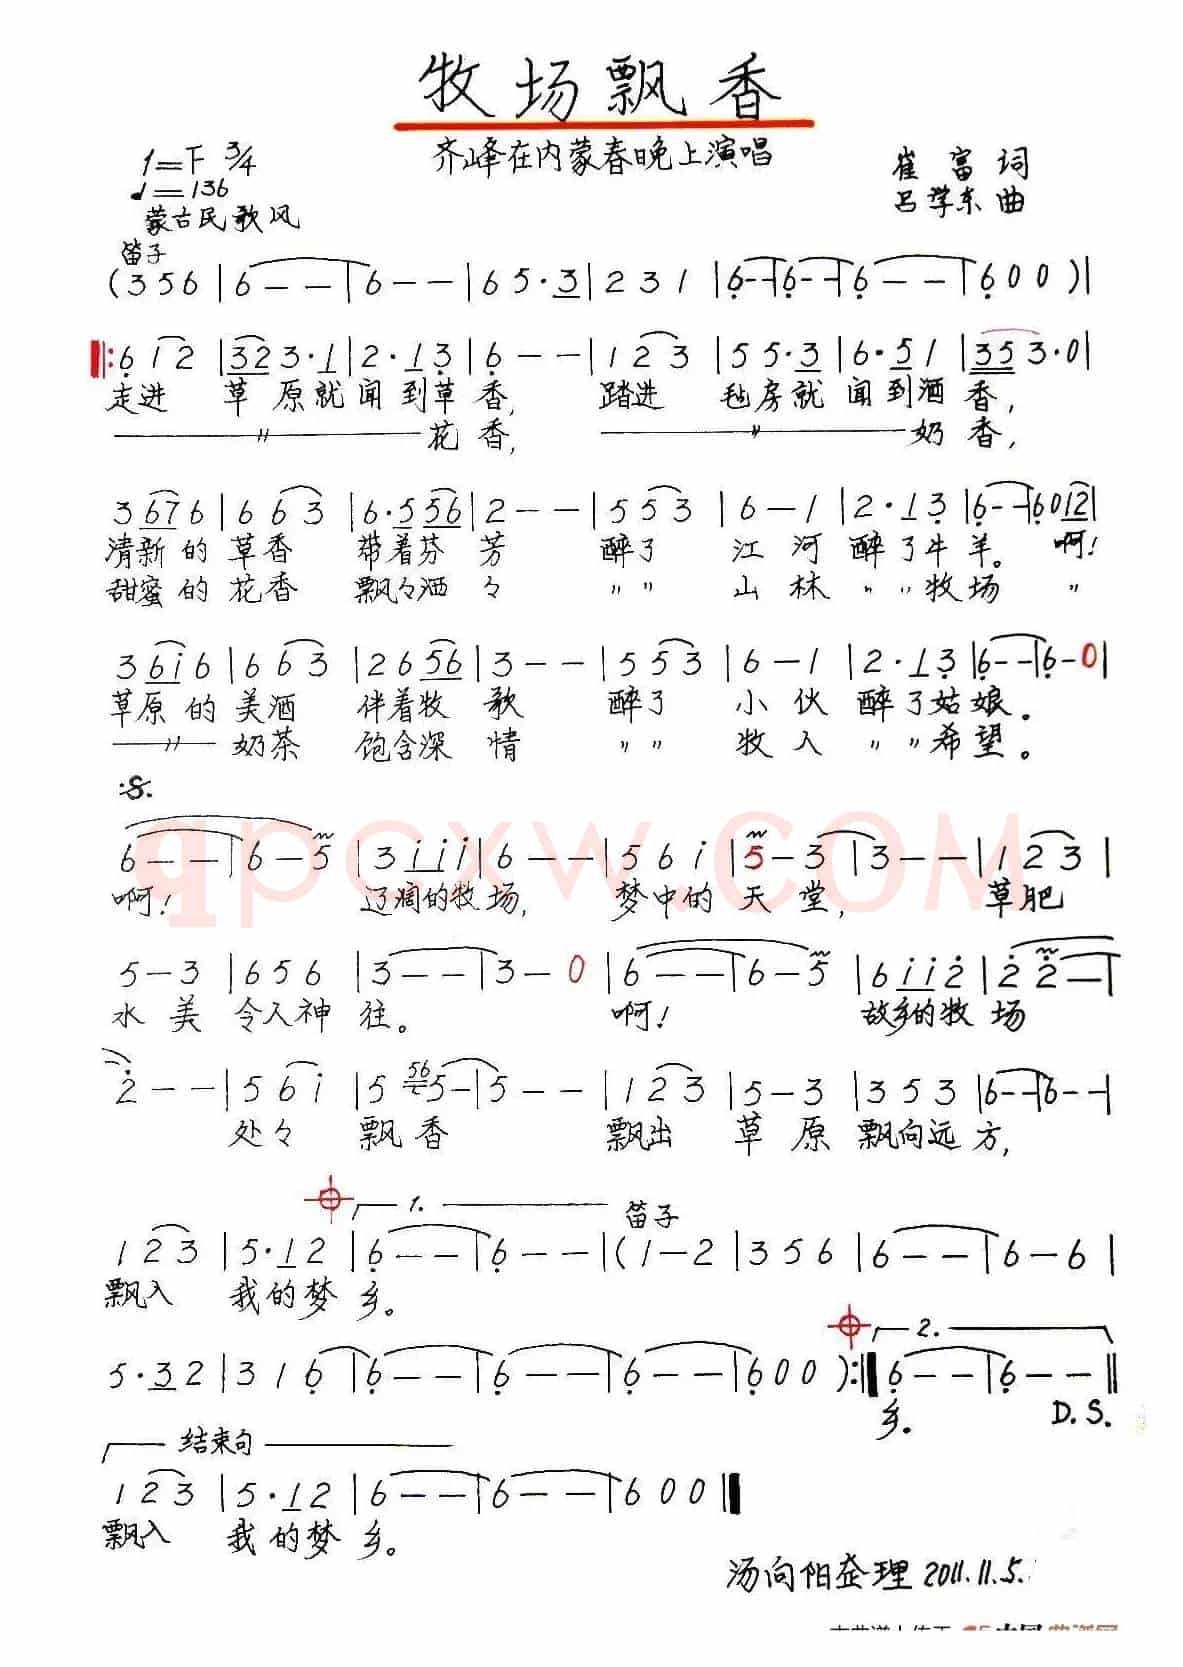 牧场飘香
齐峰在内蒙春晚上演唱
1=F 3/4
♩=136
蒙古民歌风
崔富词
吕学东曲
笛子
(356|6--|6--|65·3|231|6--|6--|6--|600)|
‖:612|323·1|2·13|6--|123|55·3|6·51|353·0|
走进 草原就闻到草香, 踏进 毡房就闻到酒香,
—〃—花香, —〃—奶香,
3676|663|6·556|2--|553|6-1|2·13|6--|6012|
清新的草香 带着芬芳 醉了 江河醉了牛羊。啊!
甜蜜的花香 飘々洒々 〃〃 山林〃〃牧场 〃
36i6|663|2656|3--|553|6-1|2·13|6--|6-0|
草原的美酒 伴着牧歌 醉了 小伙醉了姑娘。
—〃—奶茶 饱含深情 〃〃 牧人〃〃希望。
:S.
qpcxw.com
6--|6-5|3iii|6--|56i|5-3|3--|123|
啊! 辽阔的牧场, 梦中的天堂, 草肥
5-3|656|3--|3-0|6--|6-5|6ii2|22-|
水美 令人神往。 啊! 故乡的牧场
2--|56i|5 56 5-|5--|123|5-3|353|6--|6--|
处々 飘香 飘出 草原 飘向远方,
1. 笛子
123|5·12|6--|6--|(1-2|356|6--|6-6|
飘入 我的梦乡。
2.
5·32|316|6--|6--|6--|600):‖6--|6--‖
乡。 D.S.
结束句
123|5·12|6--|6--|600‖
飘入 我的梦乡。
汤向阳整理 2011.11.5.